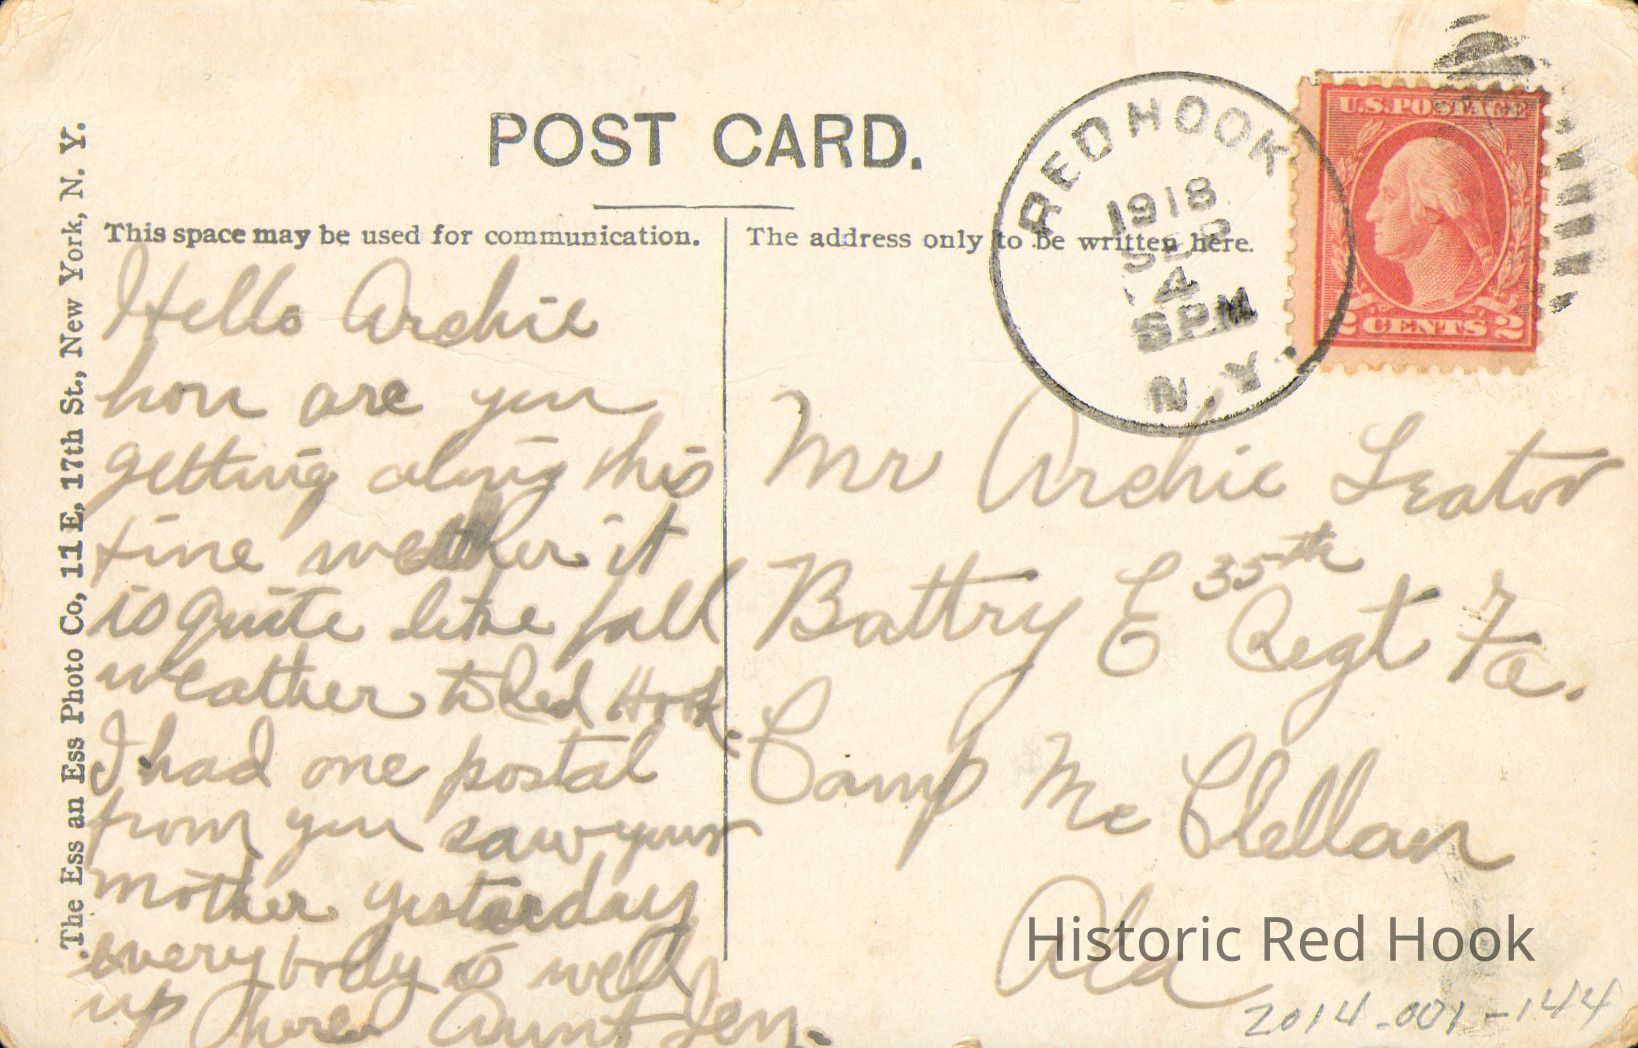 POST CARD.
This space may be used for communication.
The address only to be written here.
The Ess an Ess Photo Co, 11 E, 17th St., New York, N. Y.
RED HOOK
1918
SEP
4
5 PM
N.Y.
U.S. POSTAGE
2 CENTS 2
Hello Archie
how are you
getting along this
fine weather it
is quite like fall
weather to Red Hook
I had one postal
from you saw your
mother yesterday
everybody is well
up home Aunt Jen.
Mr Archie Seator
Battry E 35th Regt Fa.
Camp Mc Clellan
Ala
Historic Red Hook
2014-001-144